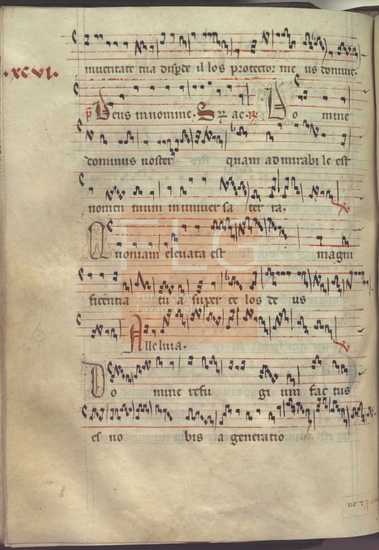 .xcvi.
in veritate tua disperde illos protector me us domine.
p̃ Deus in nomine. Sup ac. R Do mine
dominus noster quam admirabi le est
nomen tuum in univer sa ter ra.
Quoniam elevata est magni
ficentia tu a super ce los de us
Alleluia.
Do mine refu gi um fac tus
es no bis a generatio